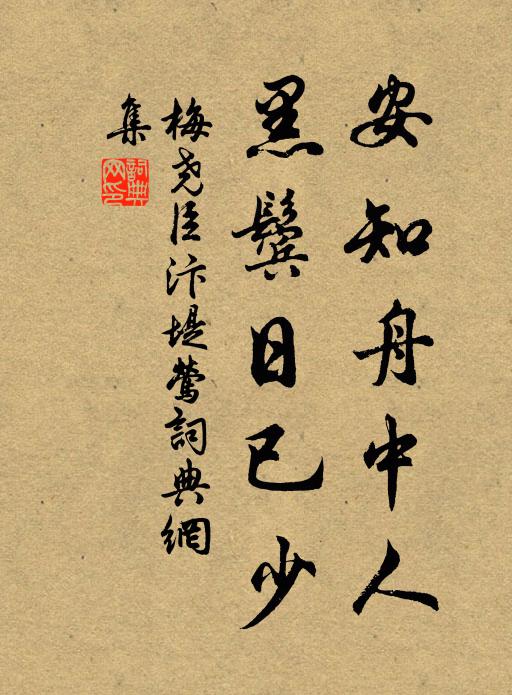 安知舟中人
黑鬓日已少
梅尧臣汴堤莺詞典網
集
詞典
网印